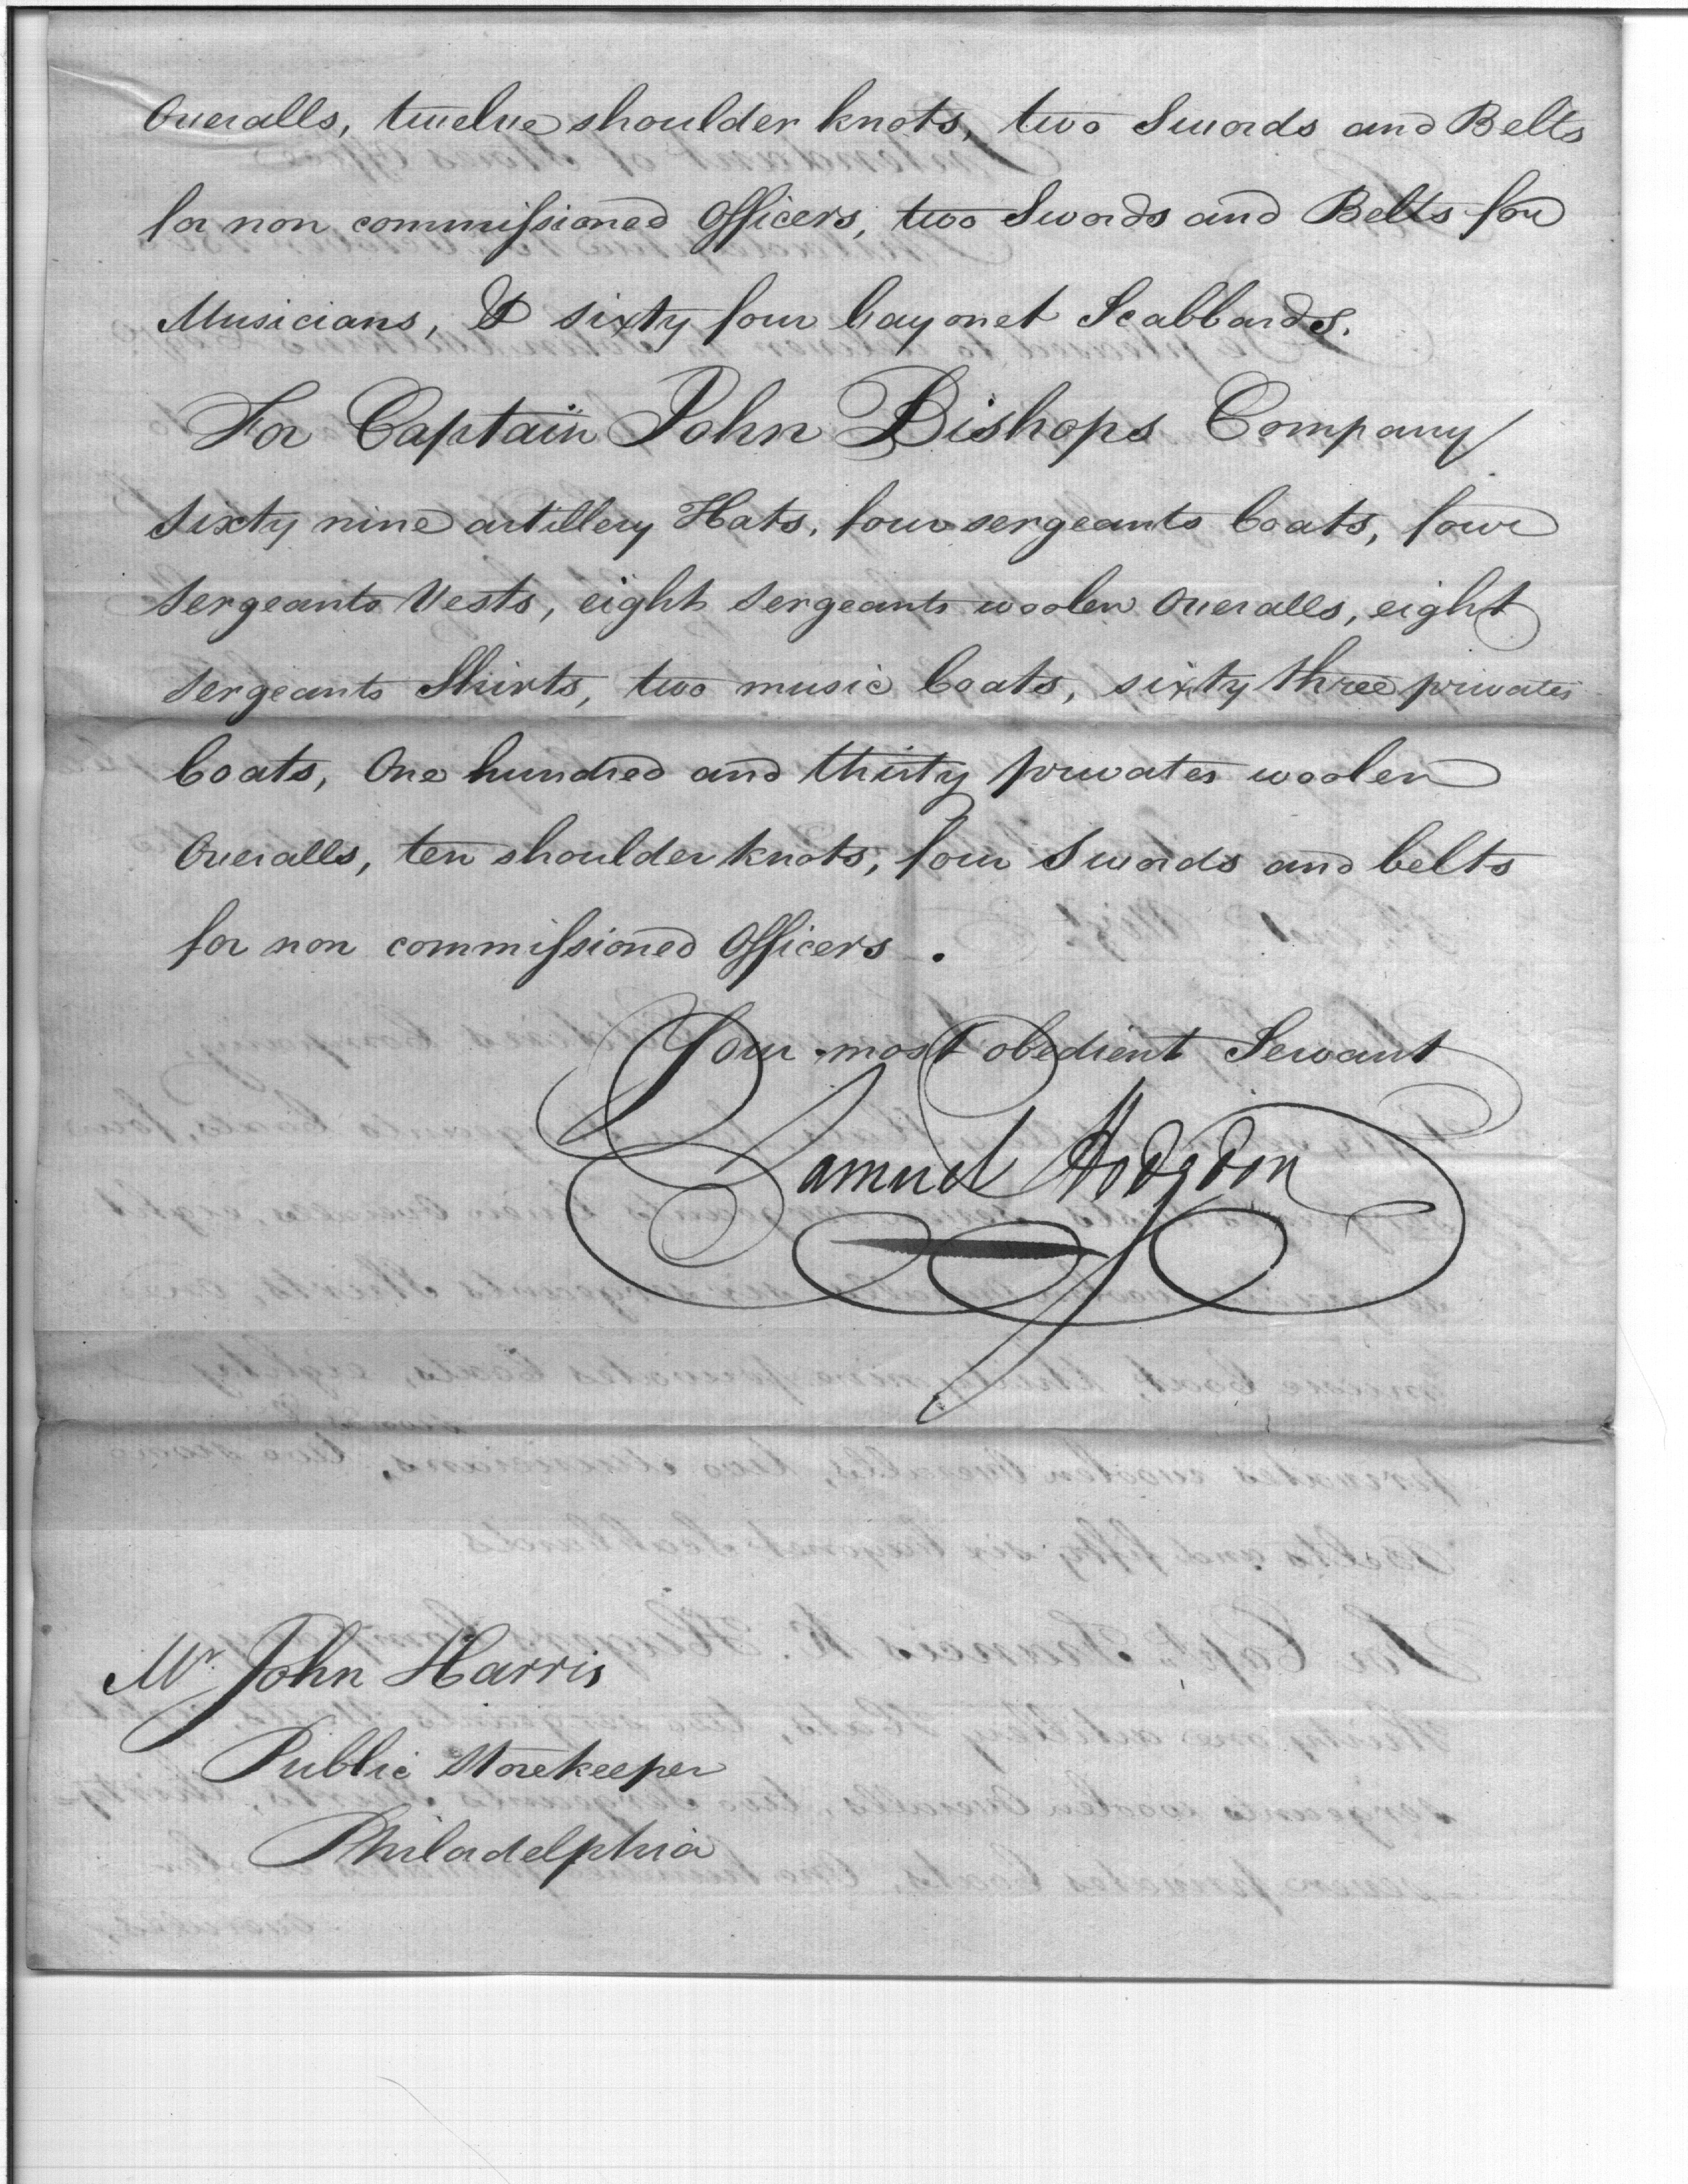 Overalls, twelve shoulder knots, two Swords and Belts
for non commissioned Officers, two Swords and Belts for
Musicians, & sixty four bayonet Scabbards.
For Captain John Bishops Company
Sixty nine artillery Hats, four sergeants Coats, four
Sergeants Vests, eight Sergeants woolen Overalls, eight
Sergeants Shirts, two music Coats, sixty three privates
Coats, One hundred and thirty privates woolen
Overalls, ten shoulder knots, four Swords and belts
for non commissioned Officers.
Your most obedient Servant
Samuel Hodgdon
Mr. John Harris
Public Storekeeper
Philadelphia